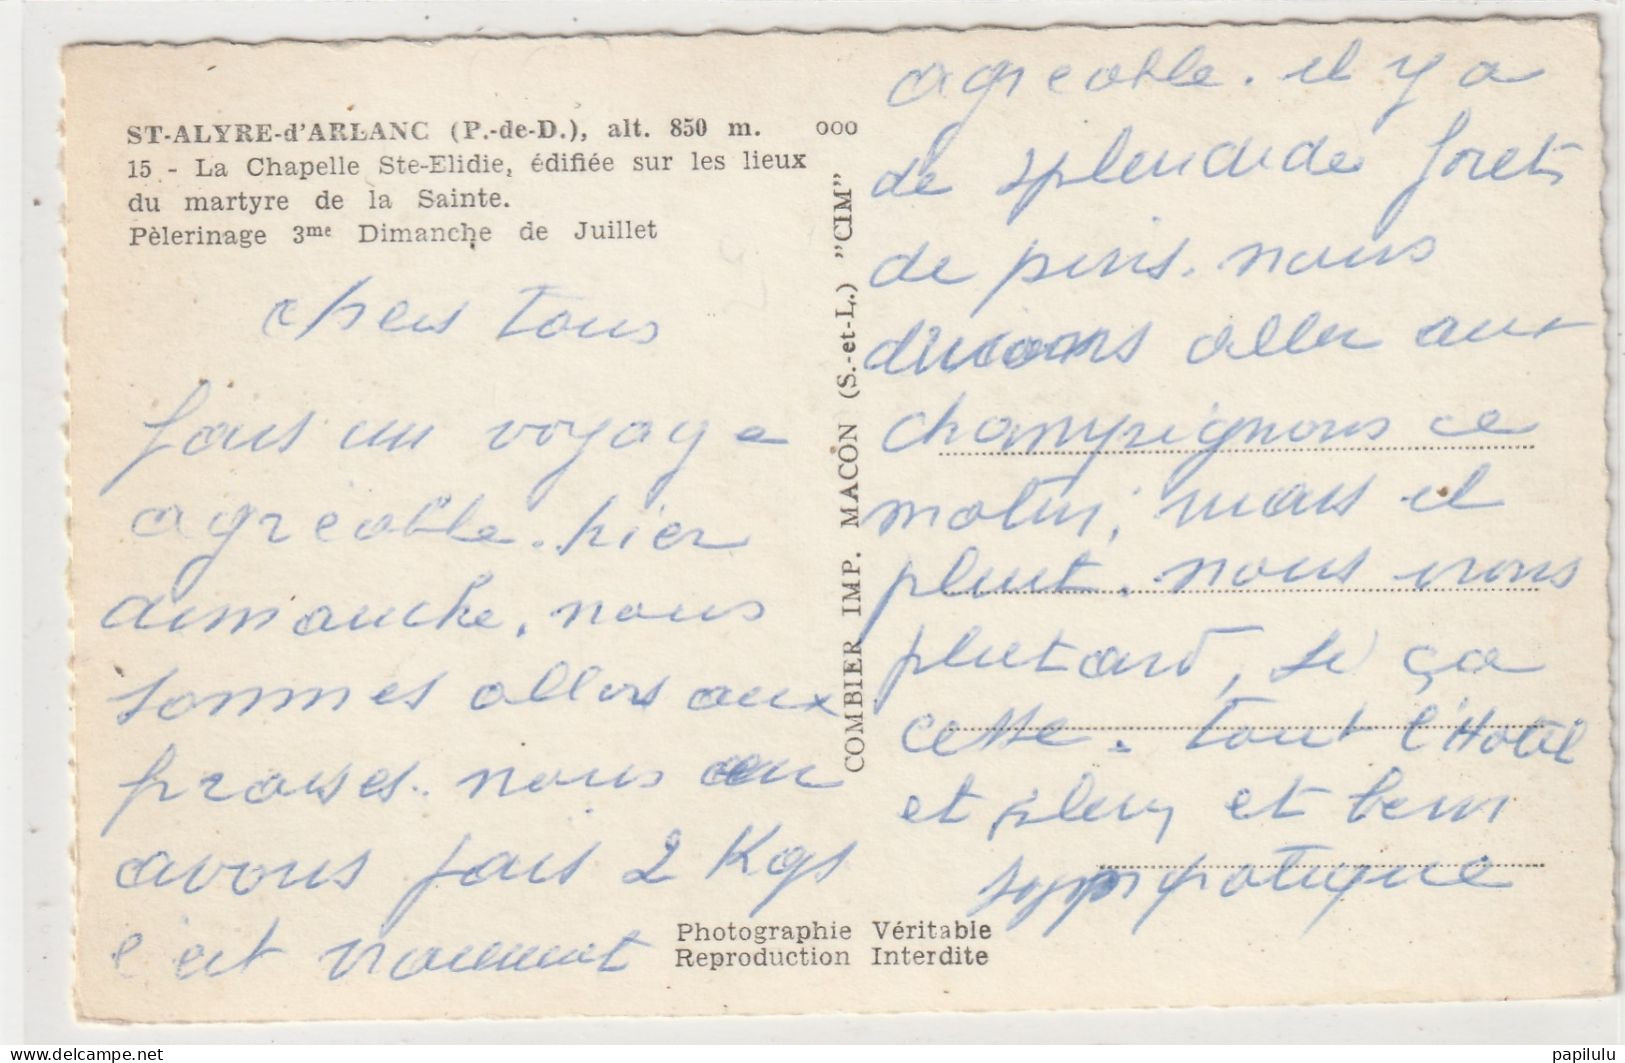 ST-ALYRE-d'ARLANC (P.-de-D.), alt. 850 m. ooo
15 - La Chapelle Ste-Elidie, édifiée sur les lieux
du martyre de la Sainte.
Pèlerinage 3me Dimanche de Juillet
chers Tous
fais un voyage
agréable. hier
dimanche, nous
sommes allers aux
fraises. nous en
avons fais 2 Kgs
c'est vraiment
COMBIER IMP. MACON (S.-et-L.) "CIM"
agreable. il y a
de splendide forets
de pins. nous
devions aller aux
champignons ce
matin, mais il
pleut. nous irons
plutard, si ça
cesse. Tout l'Hotel
et plein et bien
sympatique
Photographie Véritable
Reproduction Interdite
papilulu